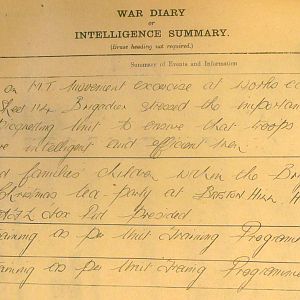 WAR DIARY
or
INTELLIGENCE SUMMARY.
(Erase heading not required.)
Summary of Events and Information
on MT Movement excercise at
Brigadier stressed the importan
unit to ensure that troops
intelligent and efficient men
families children within the B
Christmas tea-party at BREDON HILL
Presided
raining as per Unit Training Programme
raining as per Unit Traing Programme